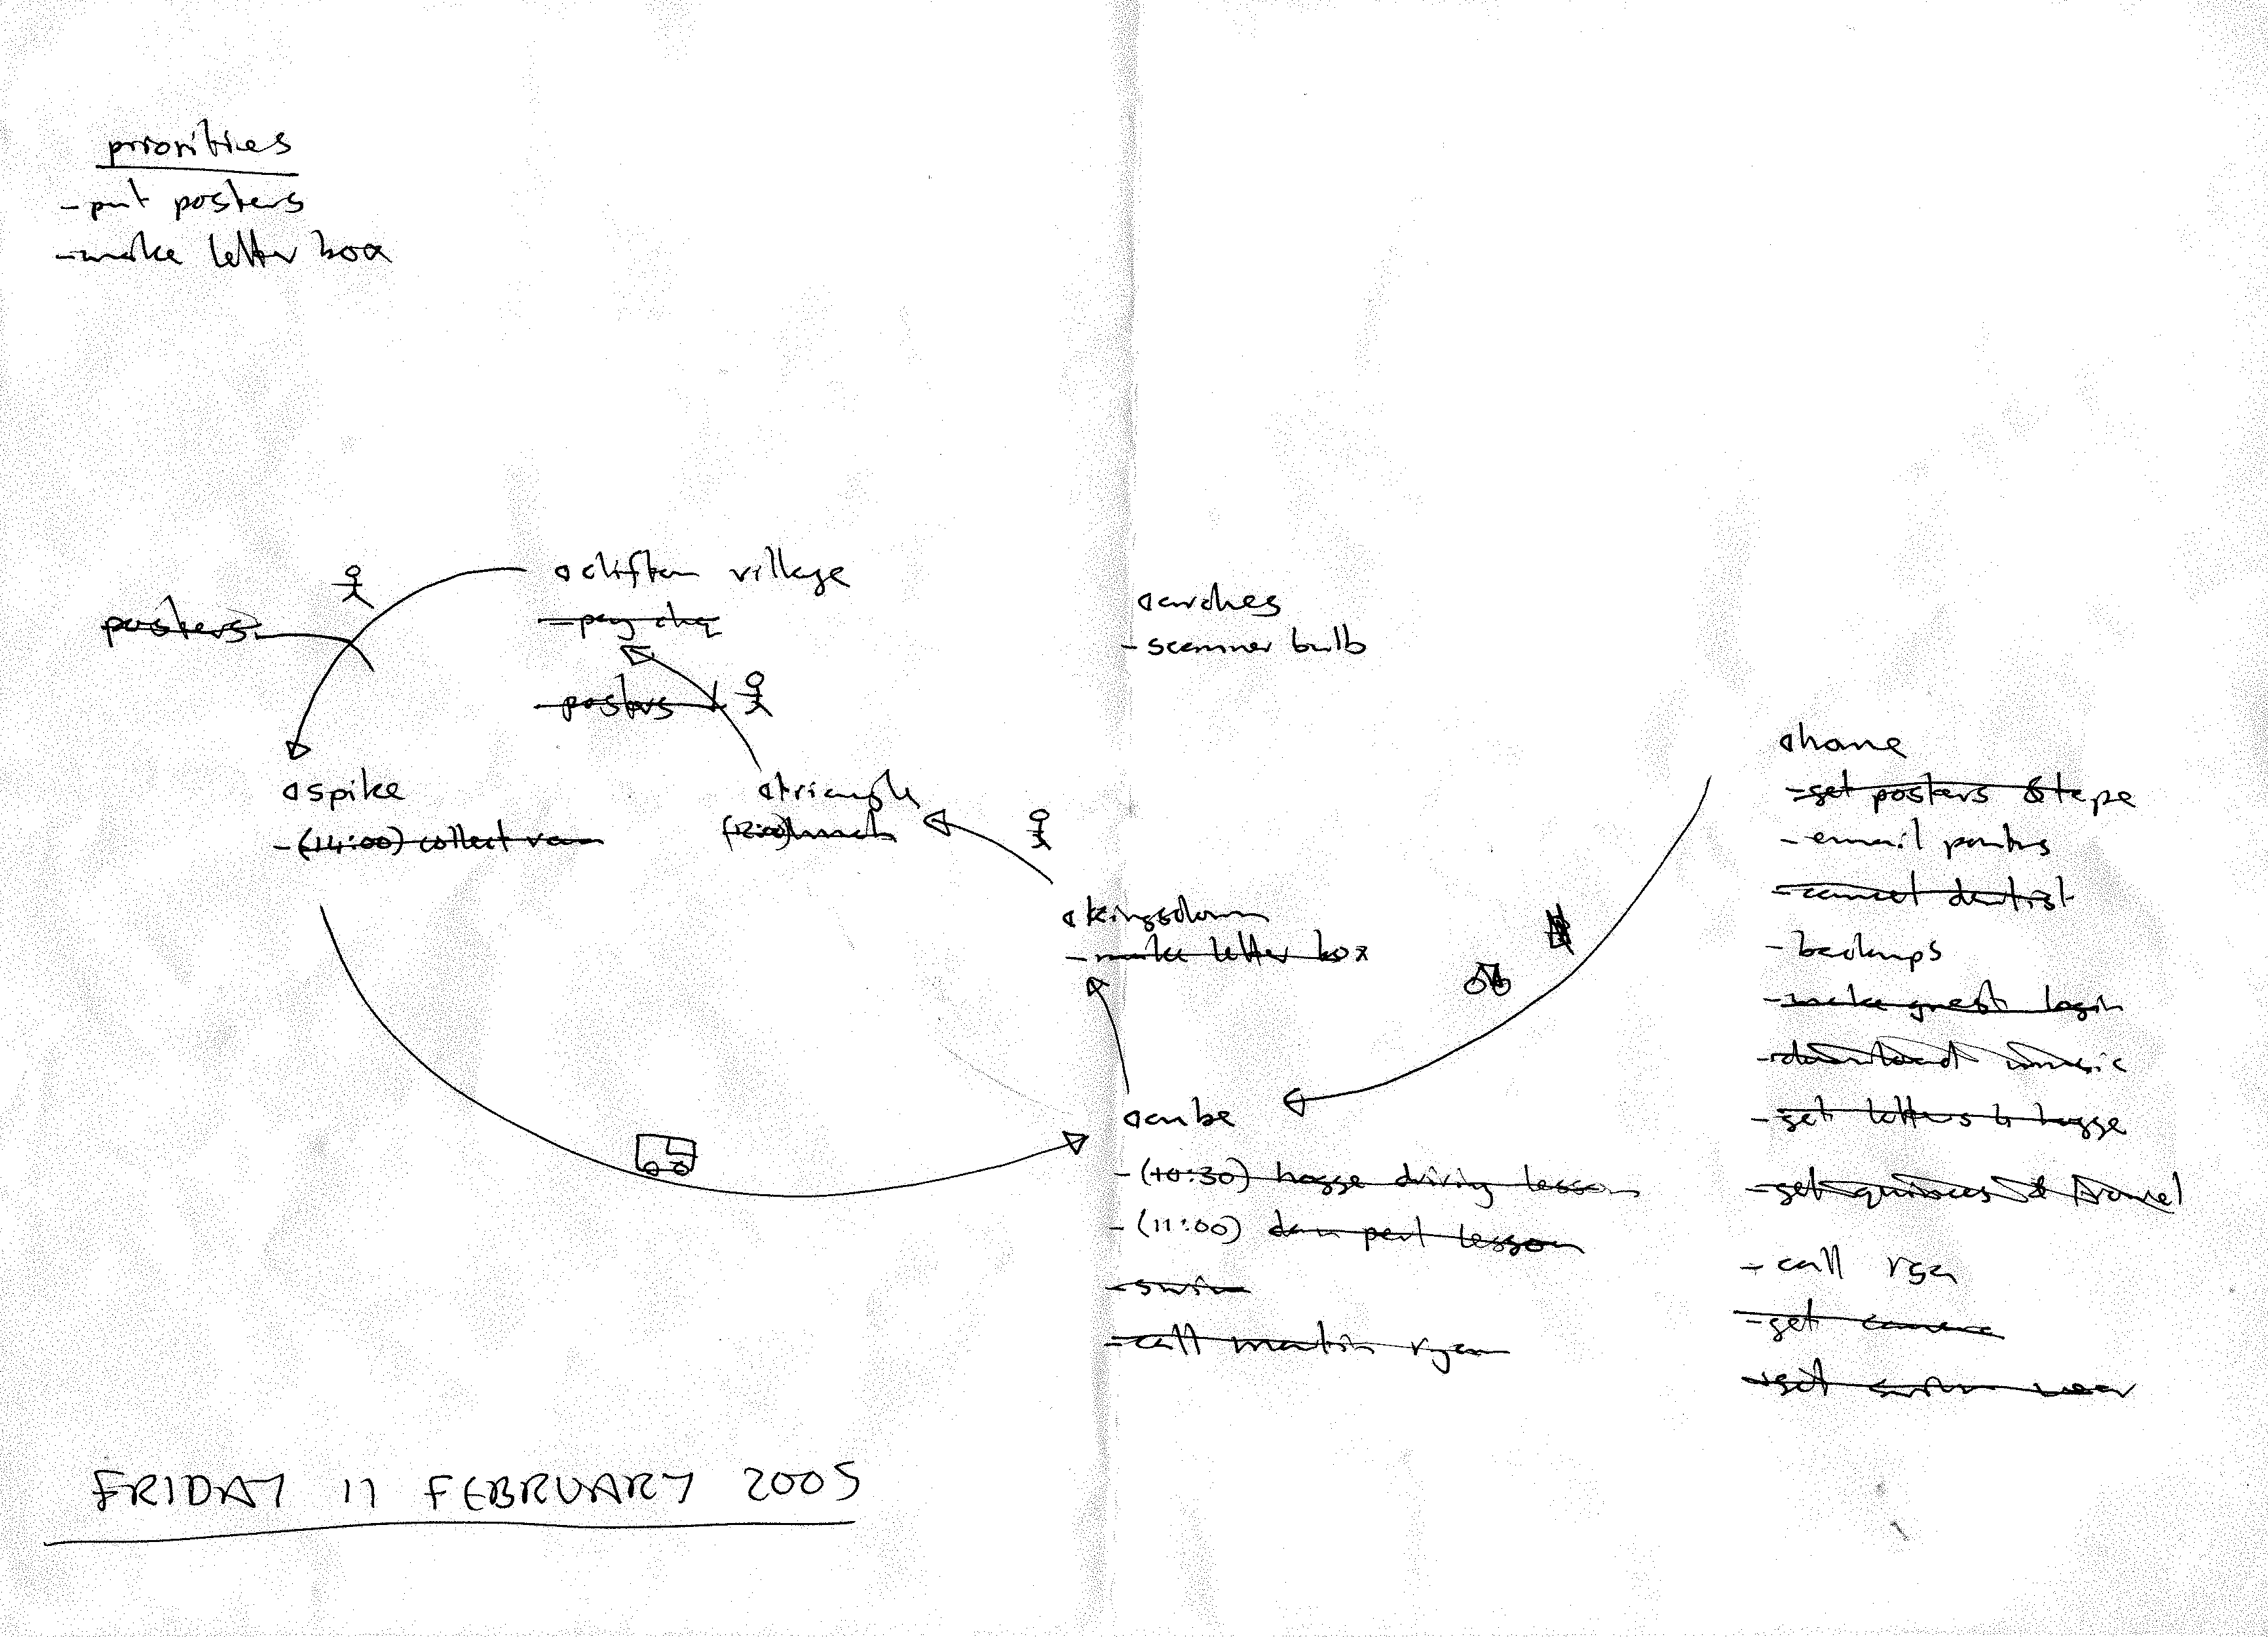 priorities
- put posters
- make letter box
clifton village
- pay chq
posters
- posters
arches
- scanner bulb
home
- get posters & tape
- email
- cancel dentist
- backups
- make guest login
- download music
- get letters 4 hogge
- get quinces &
- call
- get camera
- get swim wear
spike
- (14:00) collect van
triangle
(12:00) lunch
kingsdown
- make letter box
cube
- (10:30) hogge driving lesson
- (11:00) dan perl lesson
- swim
- call martin ryan
FRIDAY 11 FEBRUARY 2005